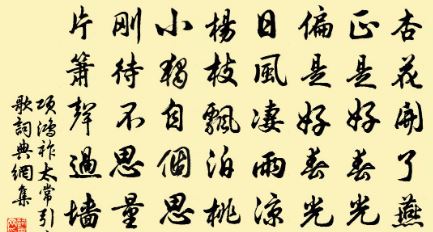 杏花開了燕
正是好春光
偏是好春光
日風凄雨涼
楊枝飄泊桃
小獨自個思
剛待不思量
片簫聲過墻
項鴻祚太常引
歌詞典網集